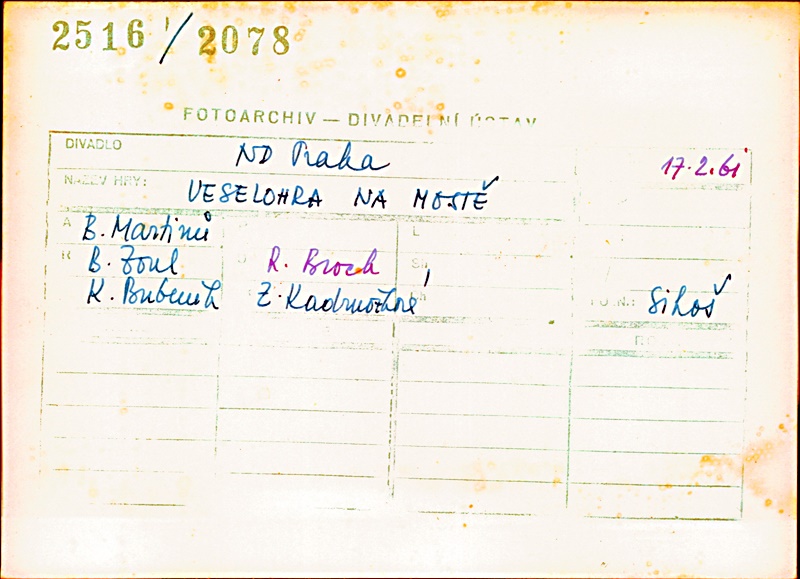 2516 / 2078
FOTOARCHIV — DIVADELNÍ ÚSTAV
DIVADLO ND Praha 17.2.61
NÁZEV HRY: VESELOHRA NA MOSTĚ
A B. Martinů L
R B. Zoul R. Brock
K. Bubeník Z. Kadrnožková FOTO N.: Sihoš